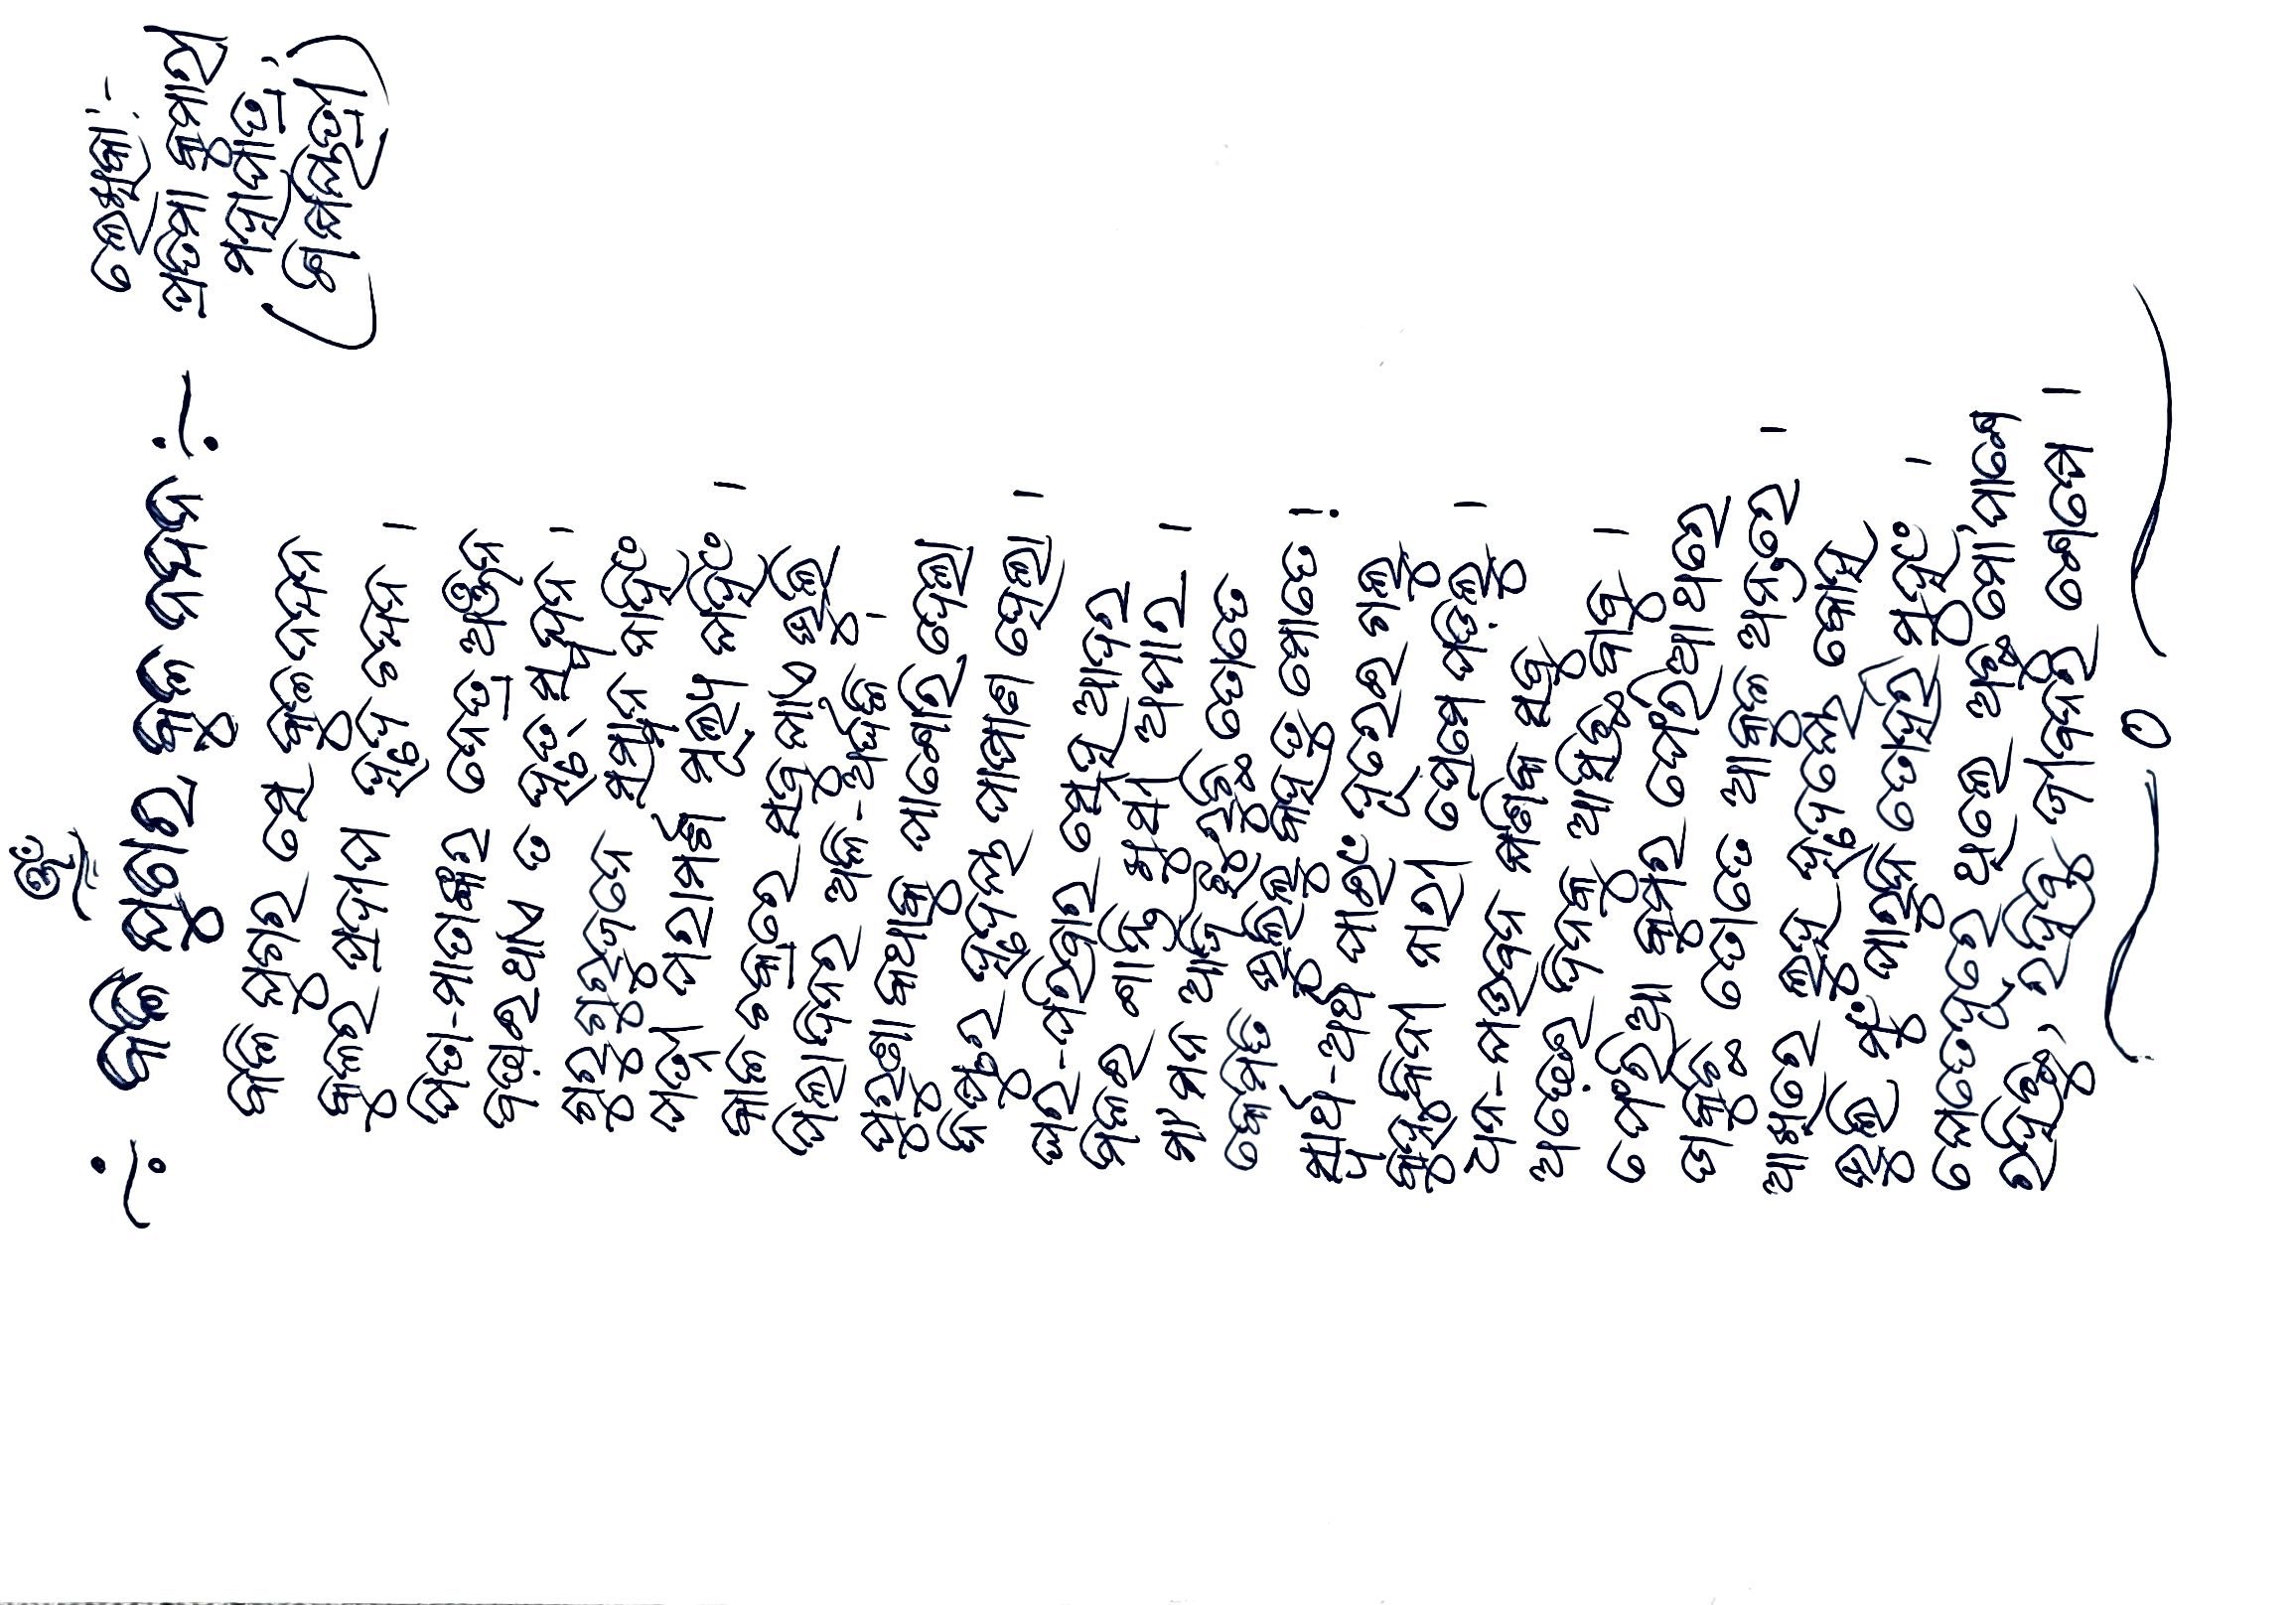 ଓଁ
କଳି ଯୁଗର କୁଳ ନନ୍ଦନ
ଲେଖିକା:-
ପ୍ରତିମା କୁମାରୀ
ମହାପାତ୍ର,
(ଶିକ୍ଷୟିତ୍ରୀ)
କଳି ଯୁଗର ସେ କୁଳନନ୍ଦନ
କୁଳର ପ୍ରଦୀପ ହୃଦେ ଚନ୍ଦନ ।
ପିତା-ମାତାଙ୍କର ନେତ୍ର ଅଞ୍ଜନ
ବଢ଼ାଇଥାଏ ତ ହୃତ୍ ସ୍ପନ୍ଦନ ।
ଗୁରୁଗୁରୁଜନେ ସମ୍ମାନ ନାହିଂ
ପତ୍ନୀ ପରାମର୍ଶ ମୂଲ୍ୟ ଲଭଇଂ ।
କାଳ ଚକ୍ରରେ ସବୁ ଯାଏ ଭୁଲି
ପିଲାଦିନର ଅଳି-ଅର୍ଦ୍ଦଳି ।
ପୁରୁଣା କଥାକୁ ପାଶୋରି ଦେଲା
ନିଷ୍ଠୁର ହୃଦୟ ପାଷାଣ ହେଲା ।
ଘର-ପରିବାର ସ୍ନେହ ଆଦର
ମିଳଇ ଶାନ୍ତି ଖୁସୀ ଅପାର ।
ମା' ମନ ଆଜି ଝୁରୁଛି ତୋତେ
କେମିତି ଭୁଲିଲୁ କହ ତୁ ମୋତେ !
ସ୍ୱାର୍ଥ-ଅର୍ଥ ପାଇଂ ଦୂରେଇ ଗଲୁ
କୁହୁକିନୀ ନାରୀ ପ୍ରେମେ ପଡ଼ିଲୁ ।
ଧନ-ଯଉବନ କ୍ଷଣିକ ସବୁ
ଅଢ଼େଇ ଦିନକୁ ଆସିଛି ବାବୁ ।
ଫେରିଆ କୁମର ଫେରିଆ ଥରେ
ଡାକୁଛି ତୋତେ ଆକୁଳ ଅନ୍ତରେ ।
ଆଖିରେ ଲୁହ ହୃଦୟେ କୋହ
ଭୁଲି ମୁଁ ପାରୁନି ତୋହରି ମୁହଂ ।
ଯେତେଦୂରେ ଥିଲେ ଅଛୁ ମୋ' ପାଶେ
ରହିଛୁ, ରହିବୁ ଜୀବନର ଶେଷେ ।